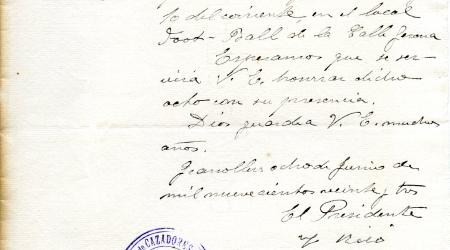 to del corriente, en el local
Foot-Ball de la Calle Gerona
Esperamos que se ser-
virá V. E. honrrar dicho
acto con su presencia.
Dios guardia V. E. muchos
años.
Granollers ocho de Junio de
mil nuevecientos veinte y tres
El Presidente
de CAZADORES